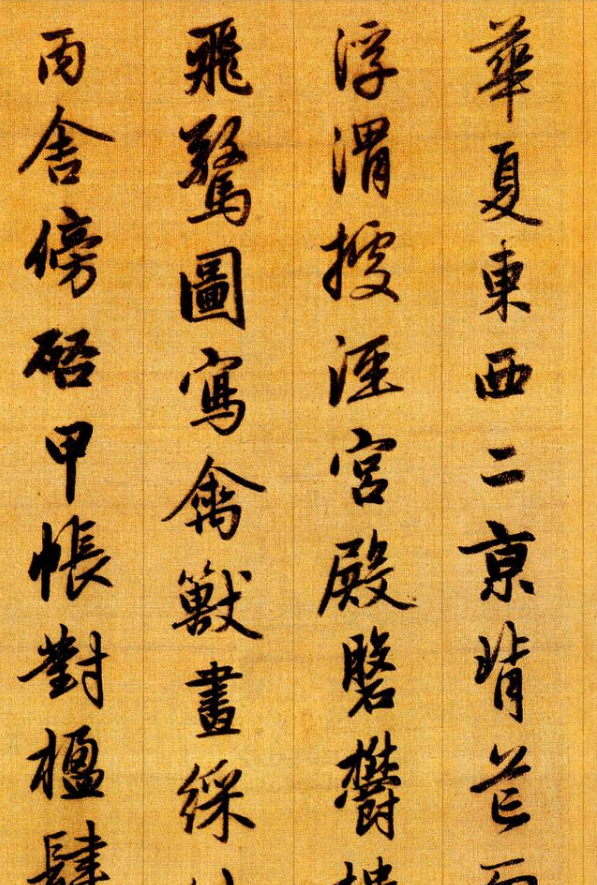 華夏東西二亰背芒
浮渭據涇宮殿磐鬱
飛驚圖寫禽獸畫綵
丙舍傍啓甲帳對楹肆